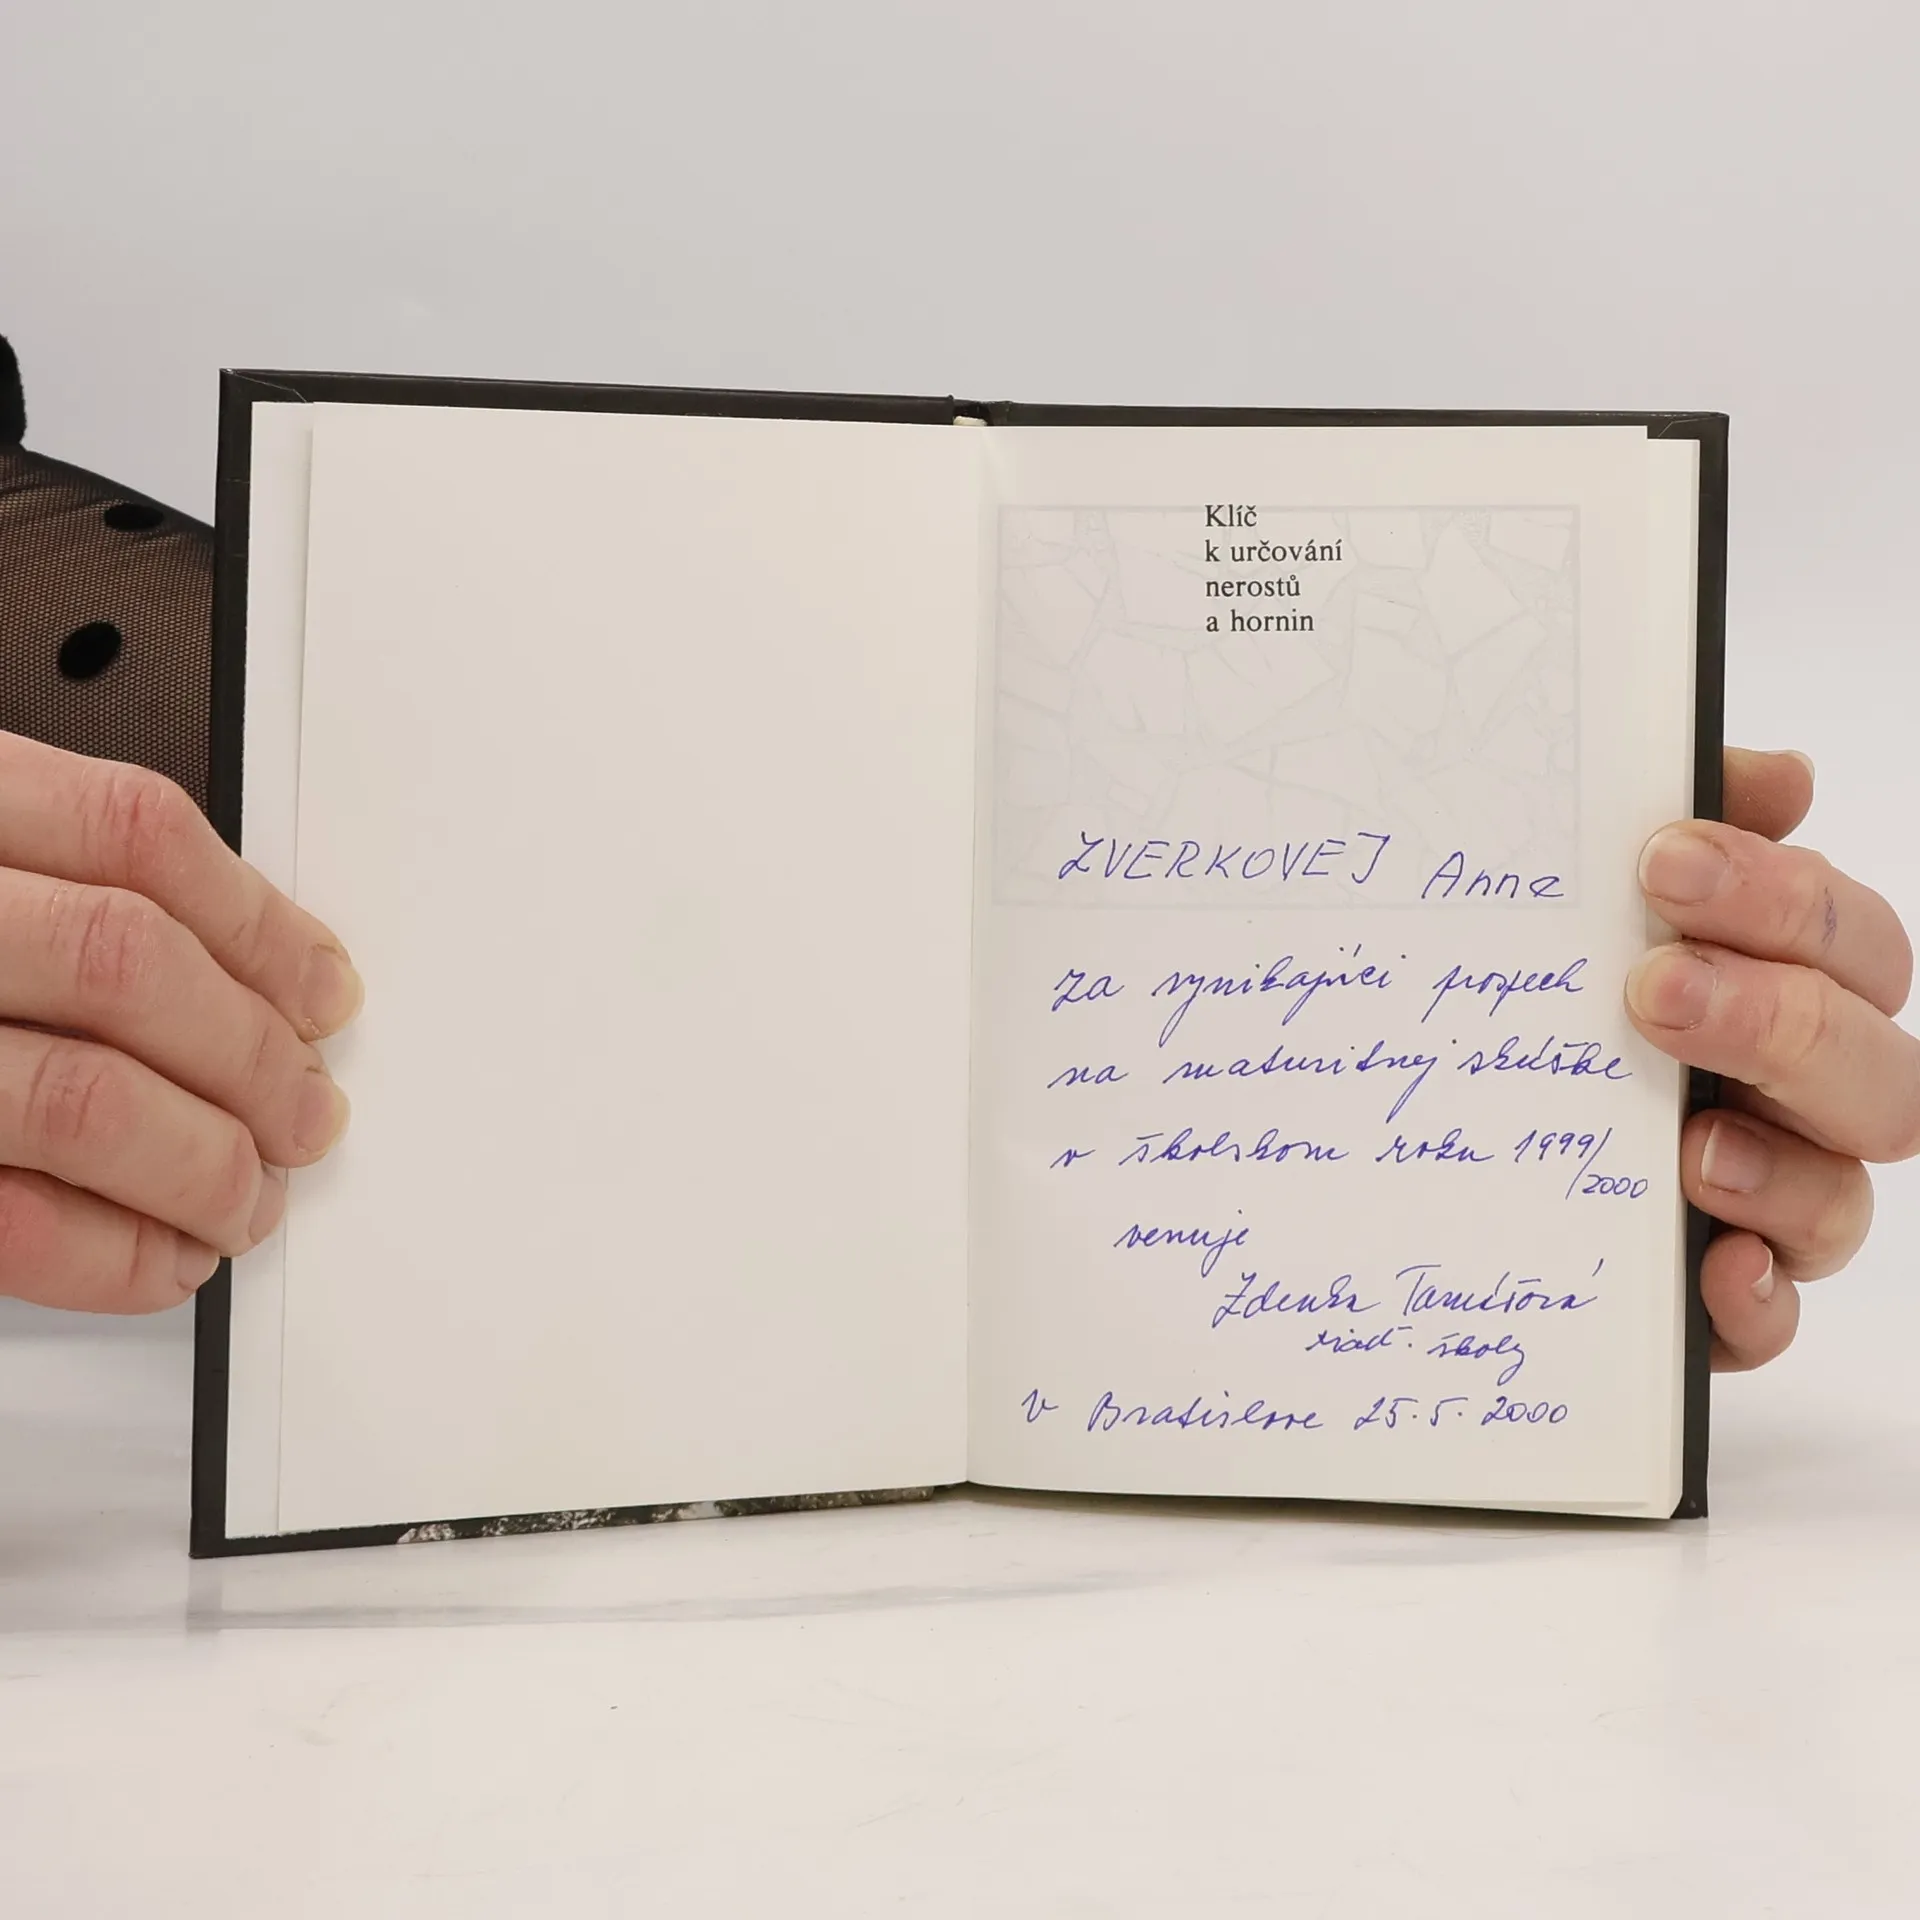 Klíč
k určování
nerostů
a hornin
ZVERKOVEJ Anne
za vynikajúci prospech
na maturitnej skúške
v školskom roku 1999/
/2000
venuje
Zdenka
riad. školy
V Bratislave 25.5.2000